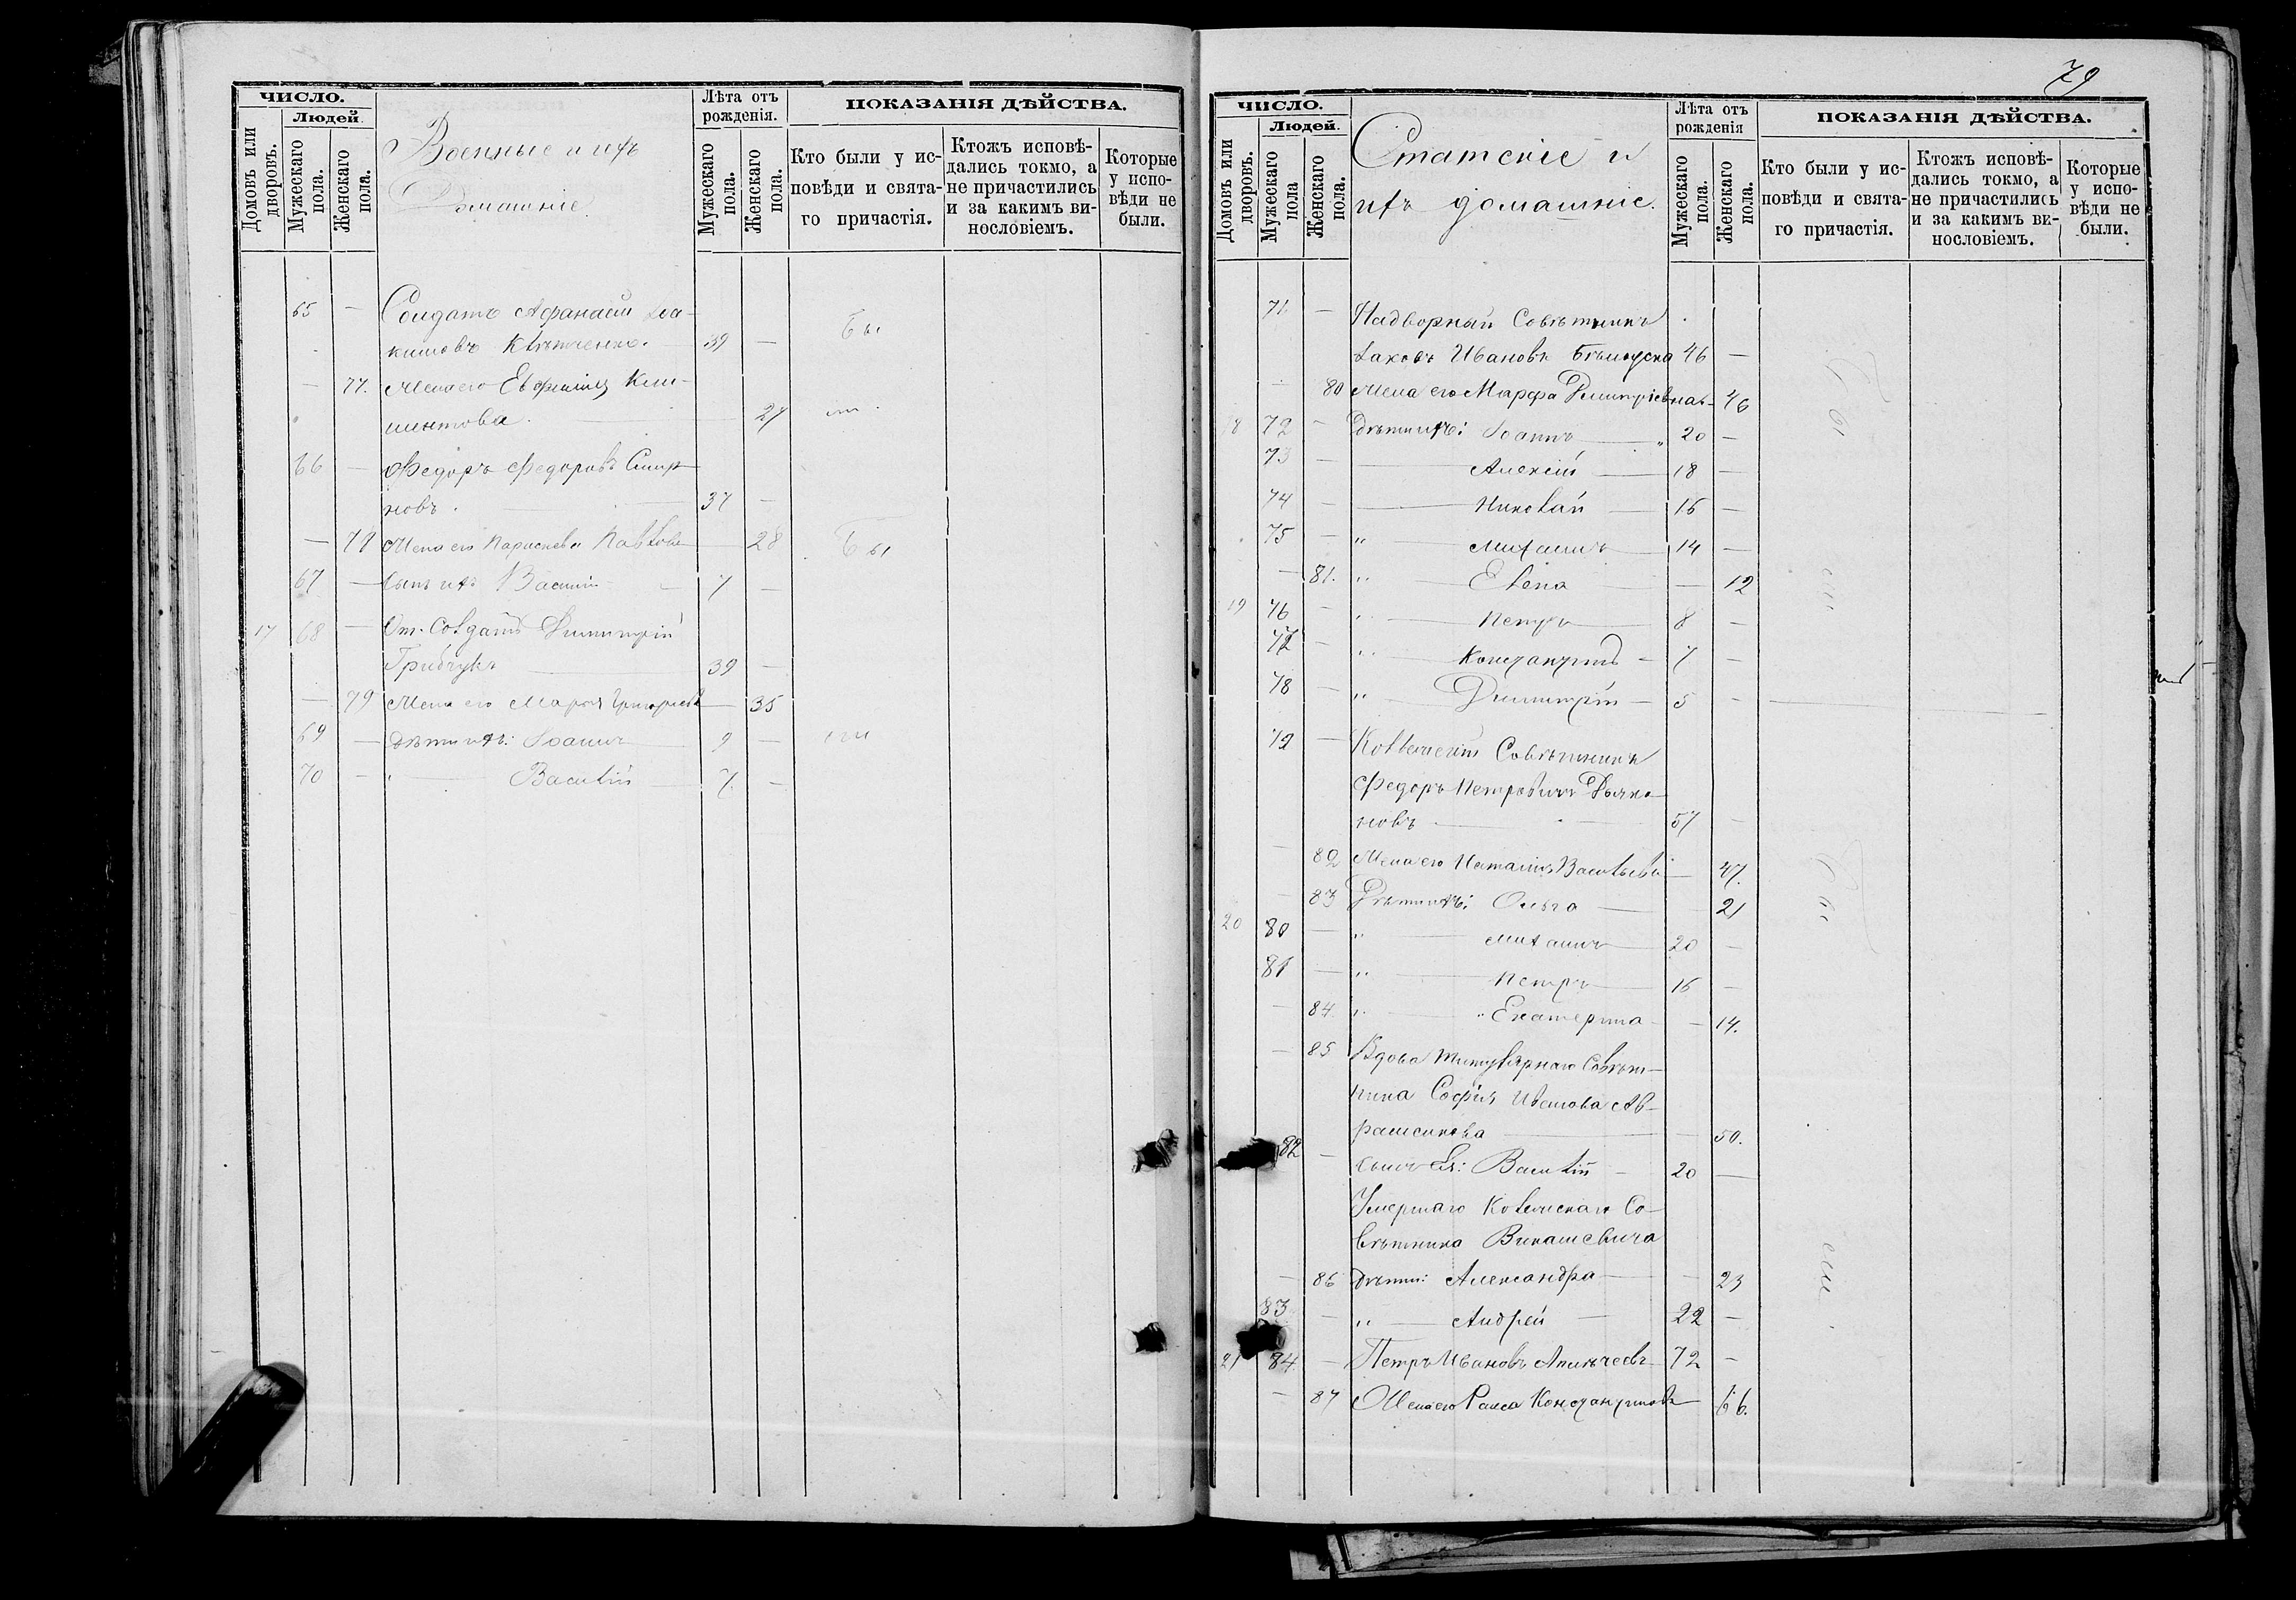 ЧИСЛО.
Людей.
Домовъ или дворовъ.
Мужескаго пола.
Женскаго пола.
Военные и ихъ
Домашніе.
Лѣта отъ рожденія.
Мужескаго пола.
Женскаго пола.
ПОКАЗАНІЯ ДѢЙСТВА.
Кто были у исповѣди и святаго причастія.
Ктожъ исповѣдались токмо, а не причастились и за какимъ винословіемъ.
Которые у исповѣди не были.
65 — Солдатъ Афанасій Іоа-
кимовъ 39 — бы
— 77. Жена его Евфимія Кли-
ментова. — 27 ли
66 — Федоръ Федоровъ Смир-
новъ. 37 —
— 78 Жена его Параскева Павлова — 28 бы
67 — Сынъ ихъ Василій 7 —
17 68 — От. Солдатъ Димитрій
Грибчукъ 39 —
— 79 Жена его Марія Григорьева — 35
69 — Дѣти ихъ: Іоаннъ 9 — ли
70 — " Василій 7. —
79
ЧИСЛО.
Людей.
Домовъ или дворовъ.
Мужескаго пола
Женскаго пола.
Статскіе и
ихъ домашніе.
Лѣта отъ рожденія
Мужескаго пола.
Женскаго пола.
ПОКАЗАНІЯ ДѢЙСТВА.
Кто были у исповѣди и святаго причастія.
Ктожъ исповѣдались токмо, а не причастились и за какимъ винословіемъ.
Которые у исповѣди не были.
71 — Надворный Совѣтникъ
Іаковъ Ивановъ 46 —
80 Жена его Марфа Димитріевна — 46
18 72 — Дѣти ихъ: Іоаннъ 20 —
73 — Алексій 18 —
74 — Николай 16 —
75 — " Михаилъ 14 —
— 81. " Елена — 12
19 76 — " Петръ 8 —
77 — " Константинъ 7 —
78 — " Димитрій 5 —
79 — Коллежскій Совѣтникъ
Федоръ Петровичъ Дьяко-
новъ 57 —
— 82 Жена его Наталія Васильева — 47.
— 83 Дѣти ихъ: Ольга — 21
20 80 — " Михаилъ 20 —
81 — " Петръ 16 —
— 84. " Екатерина — 14.
— 85 Вдова Титулярнаго Совѣт-
ника Софія Иванова Ав-
— 50.
82 — Сынъ Ея: Василій 20 —
Умершаго Коллежскаго Со-
вѣтника
— 86 Дѣти: Александра — 23
83 — " Андрей 22 —
21 84. — Петръ Ивановъ 72 —
— 87 Жена его Раиса Константинова — 66.